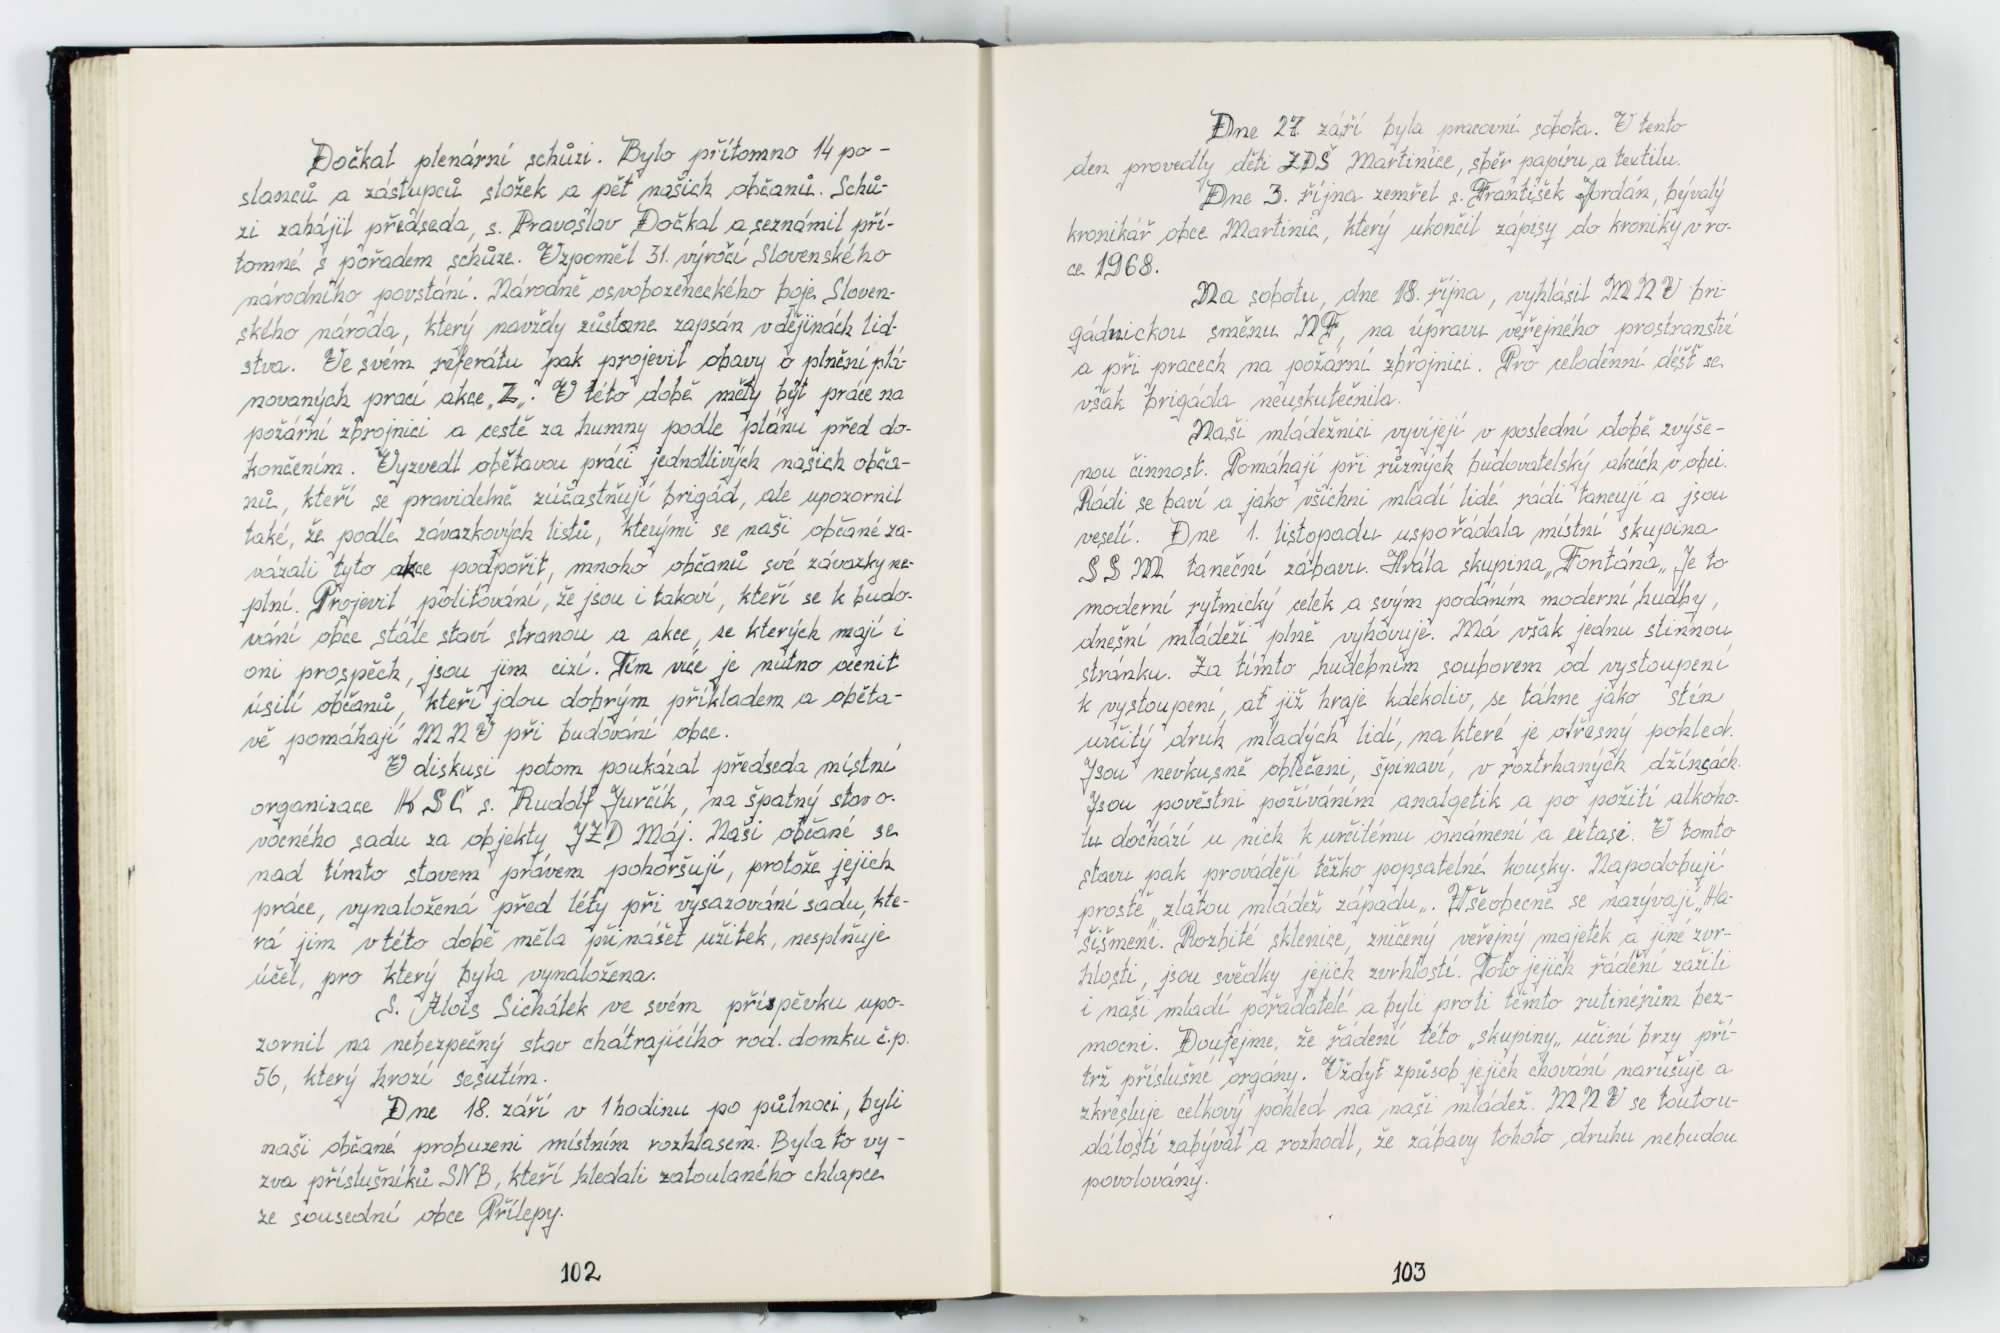 Dočkal plenární schůzi. Bylo přítomno 14 po-
slanců a zástupců složek a pět našich občanů. Schů-
zi zahájil předseda, s. Pravoslav Dočkal a seznámil pří-
tomné s pořadem schůze. Vzpoměl 31. výročí Slovenského
národního povstání. Národně osvobozeneckého boje Sloven-
ského národa, který navždy zůstane zapsán v dějinách lid-
stva. Ve svém referátu pak projevil obavy o plnění plá-
novaných prací akce „Z„. V této době měly být práce na
požární zbrojnici a cestě za humny podle plánu před do-
končením. Vyzvedl obětavou práci jednotlivých našich obča-
nů, kteří se pravidelně zúčastňují brigád, ale upozornil
také, že podle závazkových listů, kterými se naši občané za-
vázali tyto akce podpořit, mnoho občanů své závazky ne-
plní. Projevil politování, že jsou i takoví, kteří se k budo-
vání obce stále staví stranou a akce, ze kterých mají i
oni prospěch, jsou jim cizí. Tím více je nutno ocenit
úsilí občanů, kteří jdou dobrým příkladem a oběta-
vě pomáhají MNV při budování obce.
V diskusi potom poukázal předseda místní
organizace KSČ s. Rudolf Jurčík, na špatný stav o-
vocného sadu za objekty JZD Máj. Naši občané se
nad tímto stavem právem pohoršují, protože jejich
práce, vynaložená před léty při vysazování sadu, kte-
rá jim v této době měla přinášet užitek, nesplňuje
účel, pro který byla vynaložena.
S. Alois Sichálek ve svém příspěvku upo-
zornil na nebezpečný stav chátrajícího rod. domku č.p.
56, který hrozí sesutím.
Dne 18. září v 1 hodinu po půlnoci, byli
naši občané probuzeni místním rozhlasem. Byla to vý-
zva příslušníků SNB, kteří hledali zatoulaného chlapce
ze sousední obce Přílepy.
102
Dne 27. září byla pracovní sobota. V tento
den provedly děti ZDŠ Martinice, sběr papíru a textilu.
Dne 3. října zemřel s. František Jordán, bývalý
kronikář obce Martinic, který ukončil zápisy do kroniky v ro-
ce 1968.
Na sobotu, dne 18. října, vyhlásil MNV bri-
gádnickou směnu NF, na úpravu veřejného prostranství
a při pracech na požární zbrojnici. Pro celodenní déšť se
však brigáda neuskutečnila.
Naši mládežníci vyvíjejí v poslední době zvýše-
nou činnost. Pomáhají při různých budovatelský akcích v obci.
Rádi se baví a jako všichni mladí lidé rádi tancují a jsou
veselí. Dne 1. listopadu uspořádala místní skupina
SSM taneční zábavu. Hrála skupina „Fontána„ Je to
moderní rytmický celek a svým podáním moderní hudby,
dnešní mládeži plně vyhovuje. Má však jednu stinnou
stránku. Za tímto hudebním souborem od vystoupení
k vystoupení, ať již hraje kdekoliv, se táhne jako stín
určitý druh mladých lidí, na které je otřesný pohled.
Jsou nevkusně oblečeni, špinaví, v roztrhaných džínsách.
Jsou pověstni požíváním analgetik a po požití alkoho-
lu dochází u nich k určitému omámení a extasi. V tomto
stavu pak provádějí těžko popsatelné kousky. Napodobují
prostě „zlatou mládež západu„. Všeobecně se nazývají „Ha-
šišmeni. Rozbité sklenice, zničený veřejný majetek a jiné zvr-
hlosti, jsou svědky jejich zvrhlostí. Toto jejich řádění zažili
i naši mladí pořadatelé a byli proti těmto rutinérům bez-
mocni. Doufejme, že řádení této „skupiny„ učiní brzy pří-
trž příslušné orgány. Vždyť způsob jejich chování narušuje a
zkresluje celkový pohled na naši mládež. MNV se toutou-
dálostí zabýval a rozhodl, že zábavy tohoto druhu nebudou
povolovány.
103